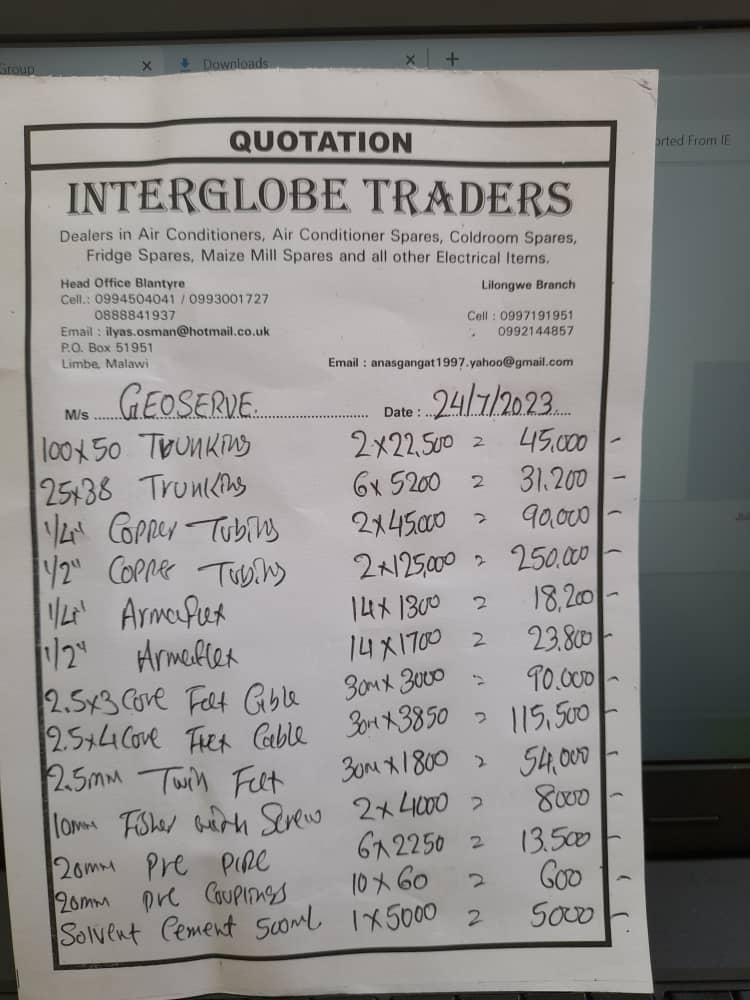 Group
Downloads
orted From IE
QUOTATION
INTERGLOBE TRADERS
Dealers in Air Conditioners, Air Conditioner Spares, Coldroom Spares,
Fridge Spares, Maize Mill Spares and all other Electrical Items.
Head Office Blantyre
Cell.: 0994504041 / 0993001727
0888841937
Email : ilyas.osman@hotmail.co.uk
P.O. Box 51951
Limbe, Malawi
Lilongwe Branch
Cell : 0997191951
0992144857
Email : anasgangat1997.yahoo@gmail.com
M/s GEOSERVE. Date : 24/7/2023
100x50 Trunking 2x22,500 = 45,000 -
25x38 Trunking 6x 5200 = 31.200 -
1/4" Copper Tubing 2x45000 = 90,000 -
1/2" Copper Tubing 2x125,000 = 250.000 -
1/4" Armaflex 14x1300 = 18,200 -
1/2" Armaflex 14x1700 = 23.800 -
2.5x3 Core Flex Cable 30m x 3000 = 90.000 -
2.5x4 Core Flex Cable 30m x3850 = 115,500 -
2.5mm Twin Flex 30m x1800 = 54,000 -
10mm Fisher with Screw 2x4000 = 8000 -
20mm pvc pipe 6x2250 = 13.500 -
20mm pvc Couplings 10x60 = 600 -
Solvent Cement 500ml 1x5000 = 5000 -